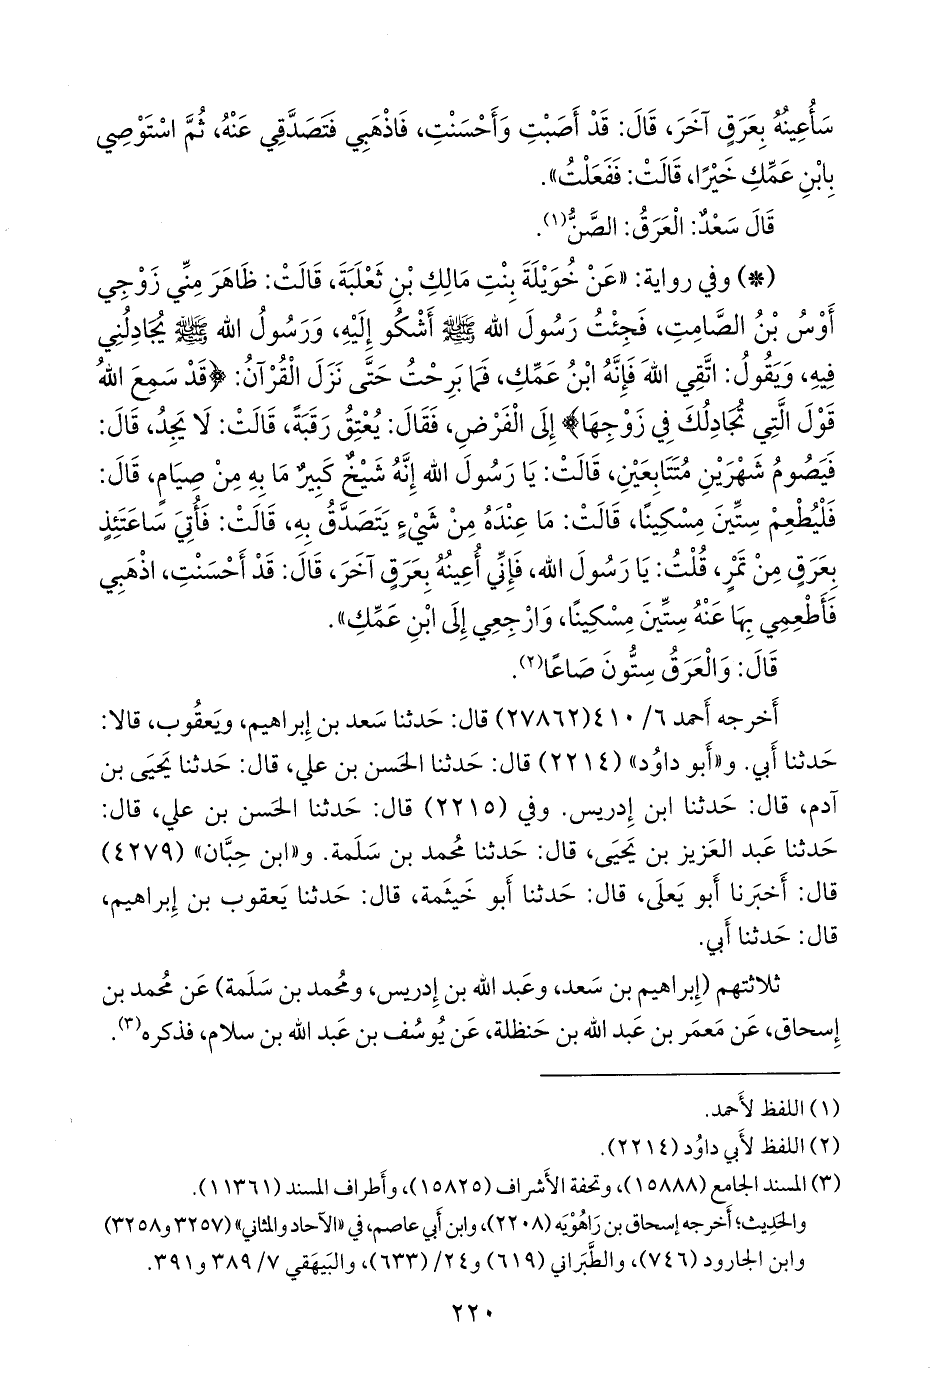 سَأُعِينُهُ بِعَرَقٍ آخَرَ، قَالَ: قَدْ أَصَبْتِ وَأَحْسَنْتِ، فَاذْهَبِي فَتَصَدَّقِي عَنْهُ، ثُمَّ اسْتَوْصِي
بِابْنِ عَمِّكِ خَيْرًا، قَالَتْ: فَفَعَلْتُ».
قَالَ سَعْدٌ: الْعَرَقُ: الصَّنُّ(١).
(*) وفي رواية: «عَنْ خُوَيْلَةَ بِنْتِ مَالِكِ بْنِ ثَعْلَبَةَ، قَالَتْ: ظَاهَرَ مِنِّي زَوْجِي
أَوْسُ بْنُ الصَّامِتِ، فَجِئْتُ رَسُولَ الله ﷺ أَشْكُو إِلَيْهِ، وَرَسُولُ الله ﷺ يُجَادِلُنِي
فِيهِ، وَيَقُولُ: اتَّقِي اللهَ فَإِنَّهُ ابْنُ عَمِّكِ، فَمَا بَرِحْتُ حَتَّى نَزَلَ الْقُرْآنُ: ﴿قَدْ سَمِعَ اللهُ
قَوْلَ الَّتِي تُجَادِلُكَ فِي زَوْجِهَا﴾ إِلَى الْفَرْضِ، فَقَالَ: يُعْتِقُ رَقَبَةً، قَالَتْ: لَا يَجِدُ، قَالَ:
فَيَصُومُ شَهْرَيْنِ مُتَتَابِعَيْنِ، قَالَتْ: يَا رَسُولَ الله إِنَّهُ شَيْخٌ كَبِيرٌ مَا بِهِ مِنْ صِيَامٍ، قَالَ:
فَلْيُطْعِمْ سِتِّينَ مِسْكِينًا، قَالَتْ: مَا عِنْدَهُ مِنْ شَيْءٍ يَتَصَدَّقُ بِهِ، قَالَتْ: فَأُتِيَ سَاعَتَئِذٍ
بِعَرَقٍ مِنْ تَمْرٍ، قُلْتُ: يَا رَسُولَ الله، فَإِنِّي أُعِينُهُ بِعَرَقٍ آخَرَ، قَالَ: قَدْ أَحْسَنْتِ، اذْهَبِي
فَأَطْعِمِي بِهَا عَنْهُ سِتِّينَ مِسْكِينًا، وَارْجِعِي إِلَى ابْنِ عَمِّكِ».
قَالَ: وَالْعَرَقُ سِتُّونَ صَاعًا(٢).
أَخرجه أَحمد ٦/ ٤١٠(٢٧٨٦٢) قال: حَدثنا سَعد بن إِبراهيم، ويَعقُوب، قالا:
حَدثنا أَبي. و«أَبو داوُد» (٢٢١٤) قال: حَدثنا الحَسن بن علي، قال: حَدثنا يَحيَى بن
آدم، قال: حَدثنا ابن إِدريس. وفي (٢٢١٥) قال: حَدثنا الحَسن بن علي، قال:
حَدثنا عَبد العَزيز بن يَحيَى، قال: حَدثنا مُحمد بن سَلَمة. و«ابن حِبَّان» (٤٢٧٩)
قال: أَخبَرنا أَبو يَعلَى، قال: حَدثنا أَبو خَيثَمة، قال: حَدثنا يَعقوب بن إِبراهيم،
قال: حَدثنا أَبي.
ثلاثتهم (إِبراهيم بن سَعد، وعَبد الله بن إِدريس، ومُحمد بن سَلَمة) عَن مُحمد بن
إِسحاق، عَن مَعمَر بن عَبد الله بن حَنظلة، عَن يُوسُف بن عَبد الله بن سلام، فذكره(٣).
(١) اللفظ لأَحمد.
(٢) اللفظ لأَبي داوُد (٢٢١٤).
(٣) المسند الجامع (١٥٨٨٨)، وتحفة الأشراف (١٥٨٢٥)، وأطراف المسند (١١٣٦١).
والحَدِيث؛ أَخرجه إِسحاق بن رَاهُوْيَه (٢٢٠٨)، وابن أَبي عاصم، في «الآحاد والمثاني» (٣٢٥٧ و٣٢٥٨)
وابن الجارود (٧٤٦)، والطَّبَراني (٦١٩) و٢٤/ (٦٣٣)، والبَيهَقي ٧/ ٣٨٩ و٣٩١.
٢٢٠